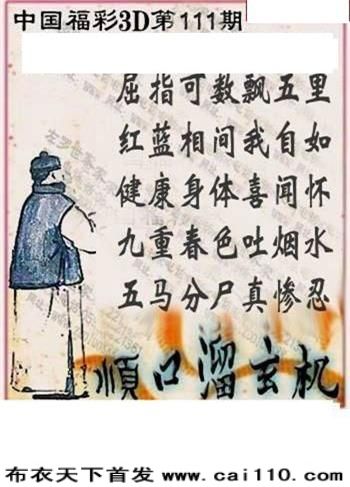 中国福彩3D第111期
屈指可数飘五里
红蓝相间我自如
健康身体喜闻怀
九重春色吐烟水
五马分尸真惨忍
顺口溜玄机
布衣天下首发 www.cai110.com